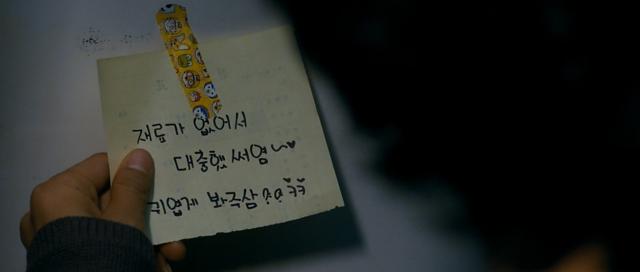 재료가 없어서
대충했써염~♥
귀엽게 봐주삼 ㅋㅋ